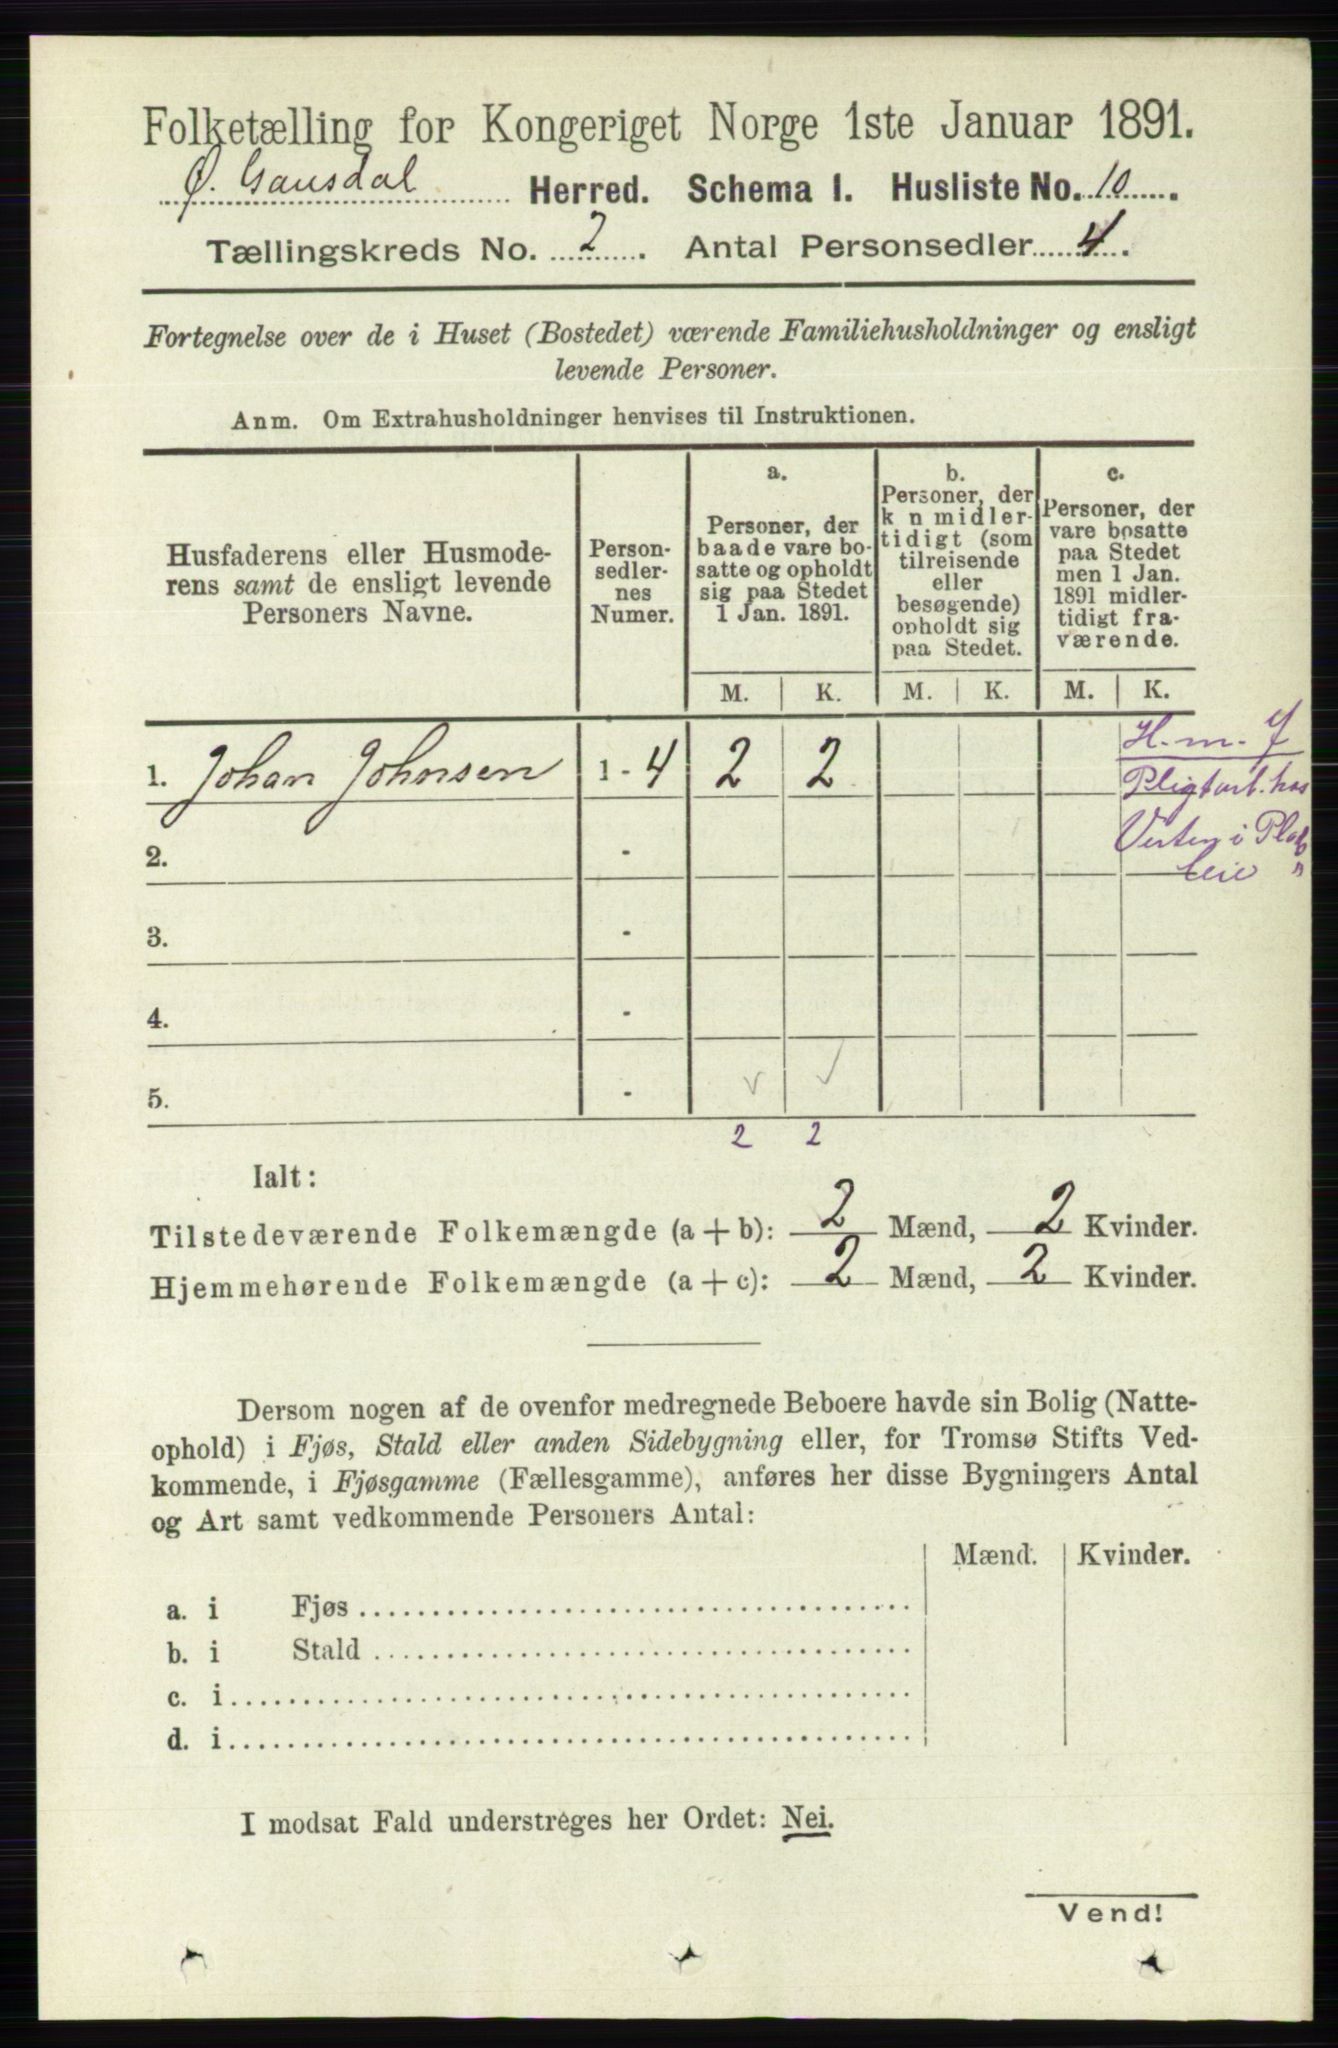 Folketælling for Kongeriget Norge 1ste Januar 1891.
Ø. Gausdal Herred. Schema I. Husliste No. 10.
Tællingskreds No. 2. Antal Personsedler 4.
Fortegnelse over de i Huset (Bostedet) værende Familiehusholdninger og ensligt
levende Personer.
Anm. Om Extrahusholdninger henvises til Instruktionen.
Husfaderens eller Husmode-
rens samt de ensligt levende
Personers Navne.
Person-
sedler-
nes
Numer.
a.
Personer, der
baade vare bo-
satte og opholdt
sig paa Stedet
1 Jan. 1891.
b.
Personer, der
k n midler-
tidigt (som
tilreisende
eller
besøgende)
opholdt sig
paa Stedet.
c.
Personer, der
vare bosatte
paa Stedet
men 1 Jan.
1891 midler-
tidigt fra-
værende.
M. K. M. K. M. K.
H. m. J
1. Johan Johnsen 1 - 4 2 2
Pligtarb. hos
2. -
Verten i Plads
leie "
3. -
4. -
5. -
2 2
Ialt:
Tilstedeværende Folkemængde (a + b): 2 Mænd, 2 Kvinder.
Hjemmehørende Folkemængde (a + c): 2 Mænd, 2 Kvinder.
Dersom nogen af de ovenfor medregnede Beboere havde sin Bolig (Natte-
ophold) i Fjøs, Stald eller anden Sidebygning eller, for Tromsø Stifts Ved-
kommende, i Fjøsgamme (Fællesgamme), anføres her disse Bygningers Antal
og Art samt vedkommende Personers Antal:
Mænd. Kvinder.
a. i Fjøs
b. i Stald
c. i
d. i
I modsat Fald understreges her Ordet: Nei.
Vend!